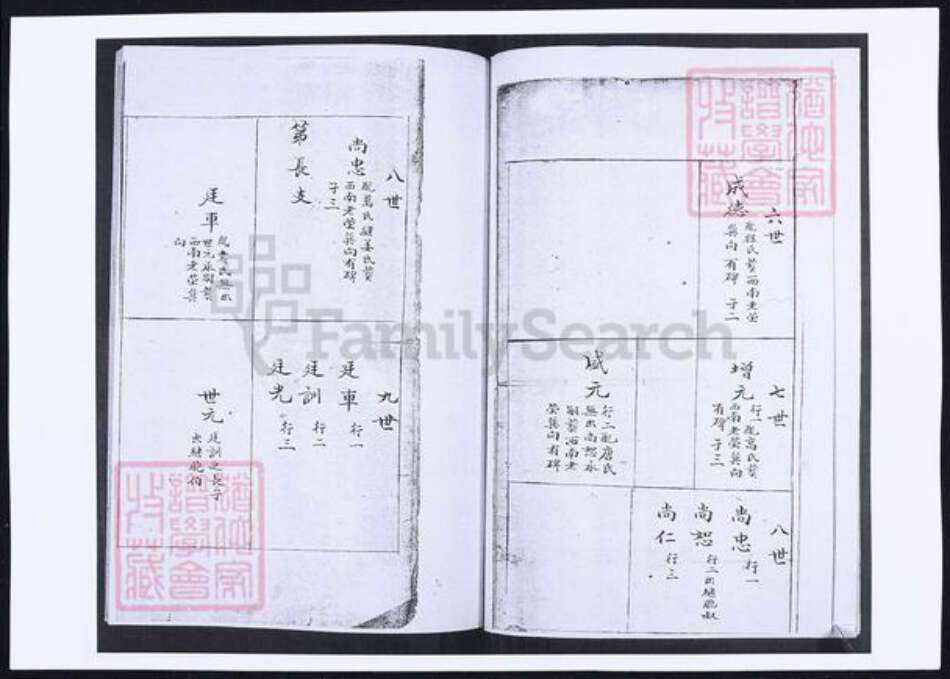 六世
成德
配程氏葬西南老塋
巽向有碑 子二
七世
增元
行一配高氏葬
西南老塋巽向
有碑 子三
咸元
行二配唐氏
無出尚恕承
嗣葬西南老
塋巽向有碑
八世
尚忠 行一
尚恕 行二出繼胞叔
尚仁 行三
八世
尚忠
配萬氏繼姜氏葬
西南老塋巽向有碑
子三
第長支
廷車
氏無出
世元承嗣葬
西南老塋巽
向
九世
廷車 行一
廷訓 行二
廷光 行三
世元
廷訓之長子
出繼胞伯
FamilySearch